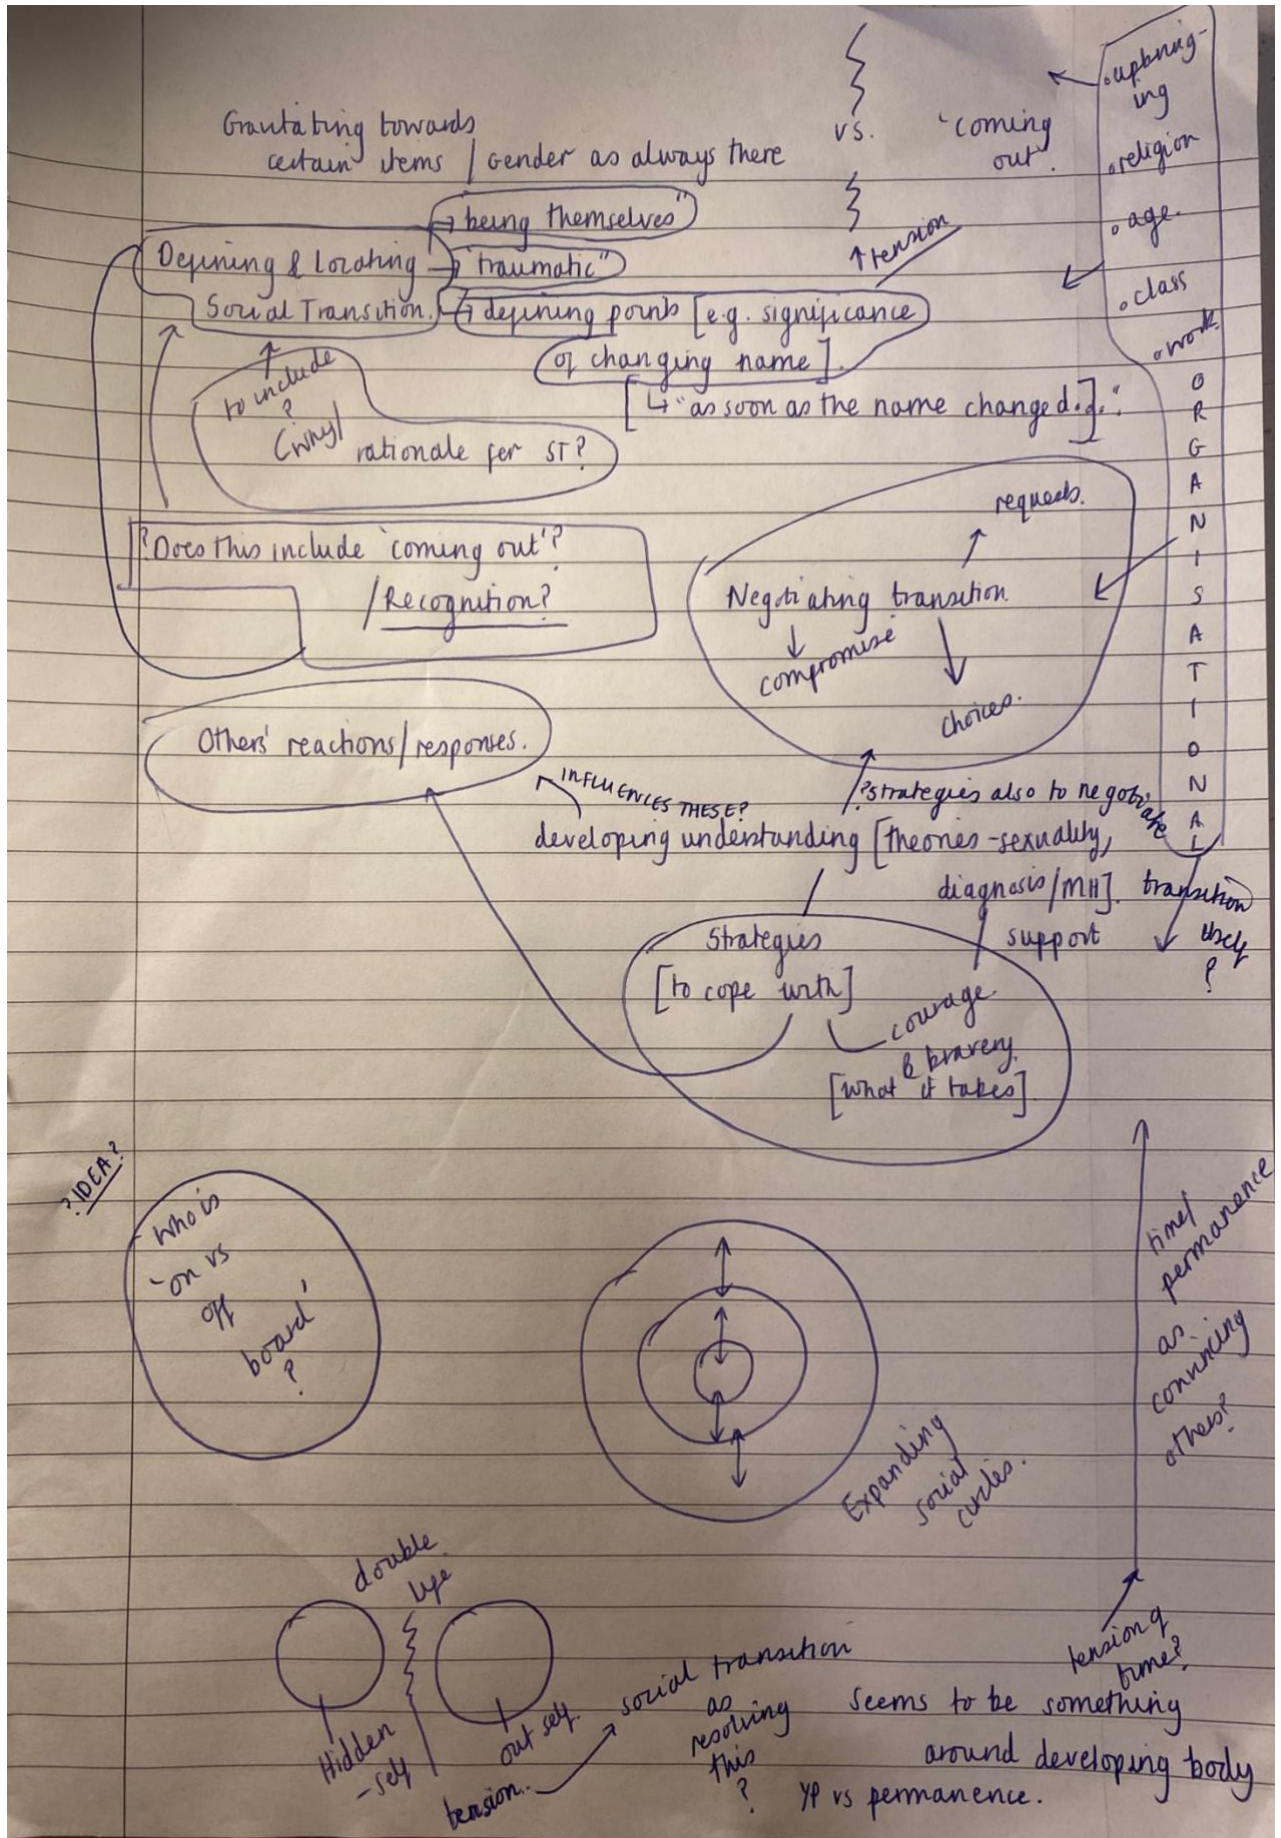 Gravitating towards
certain items / Gender as always there
vs.
'coming
out'.
upbring-
ing
religion
age.
class
work
ORGANISATIONAL
"being themselves"
Defining & Locating
Social Transition.
"traumatic"
defining points [e.g. significance
of changing name].
["as soon as the name changed..."]
tension
to include
?
(why/
rationale for ST?
? Does this include 'coming out'?
/Recognition?
requests.
Negotiating transition.
compromise
choices.
Others' reactions/responses.
INFLUENCES THESE?
?strategies also to negotiate
transition
itself
?
developing understanding [theories - sexuality,
diagnosis/MH].
support
Strategies
[to cope with]
courage
& bravery.
[what it takes]
?IDEA?
Who is
'on vs
off
board'
?
Expanding
social
circles.
time/
permanence
as
convincing
others?
tension of
time?
double
life
Hidden
-self
out self.
tension..
social transition
as
resolving
this
?
seems to be something
around developing body
YP vs permanence.